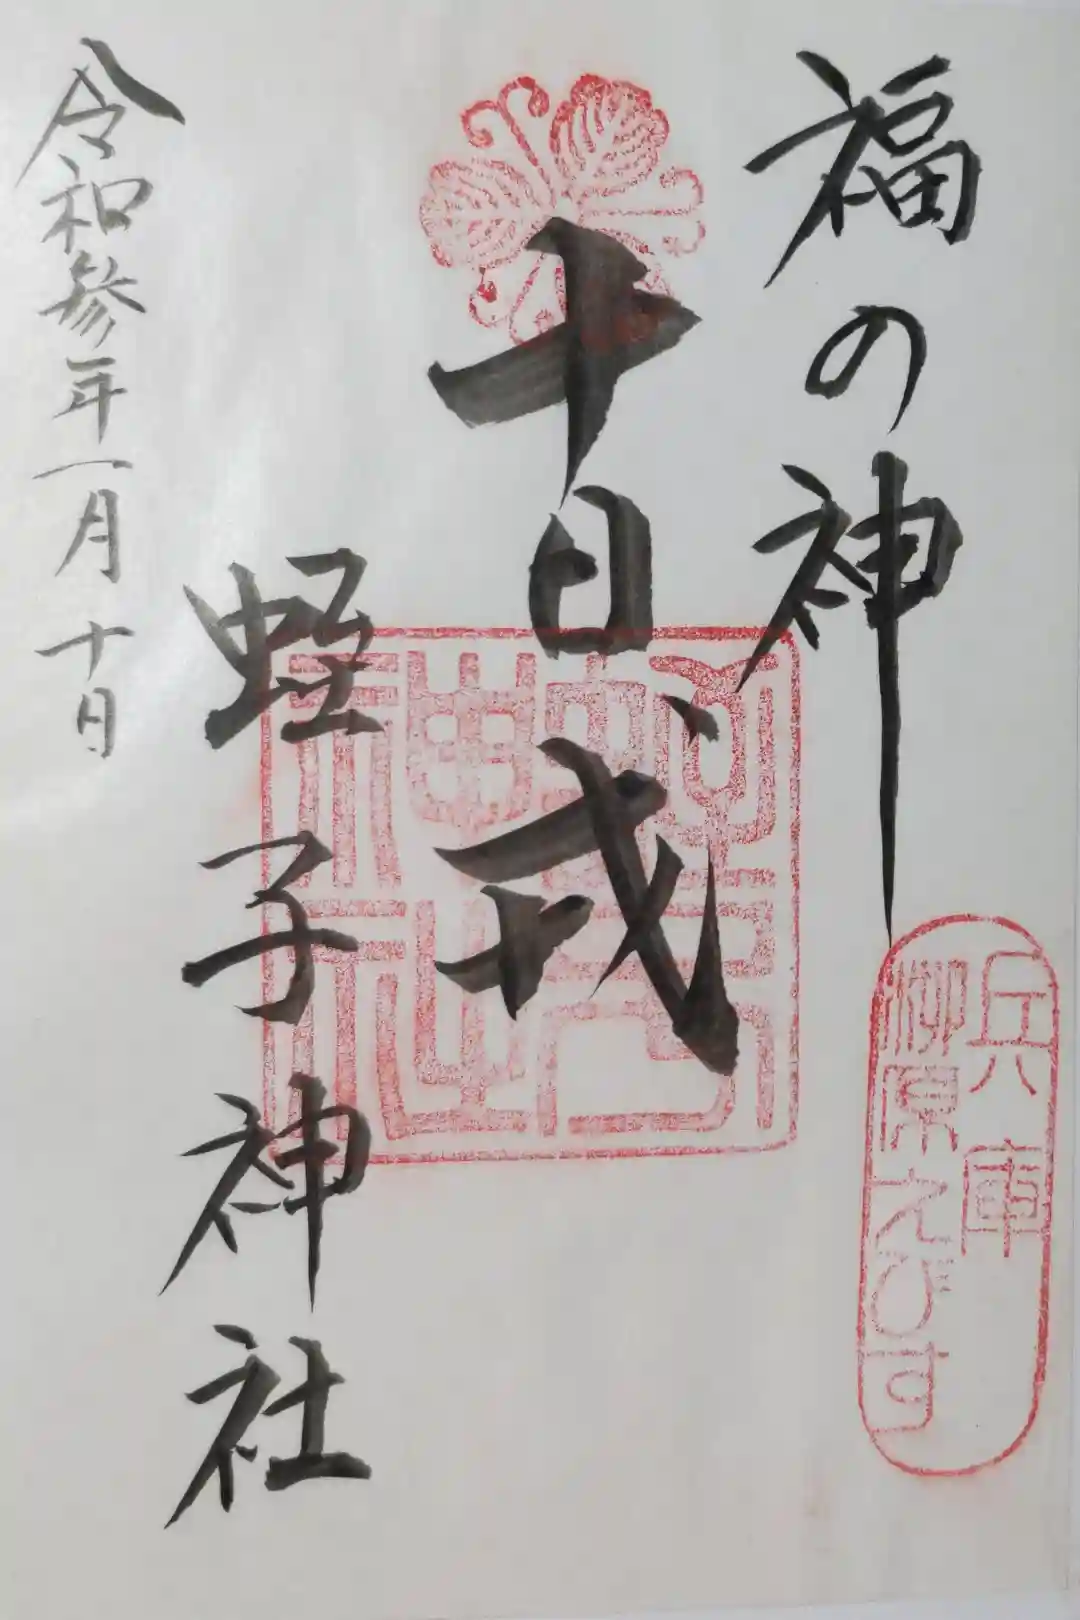 福の神
兵庫
柳原えびす
十日戎
蛭子神社
令和参年一月十日